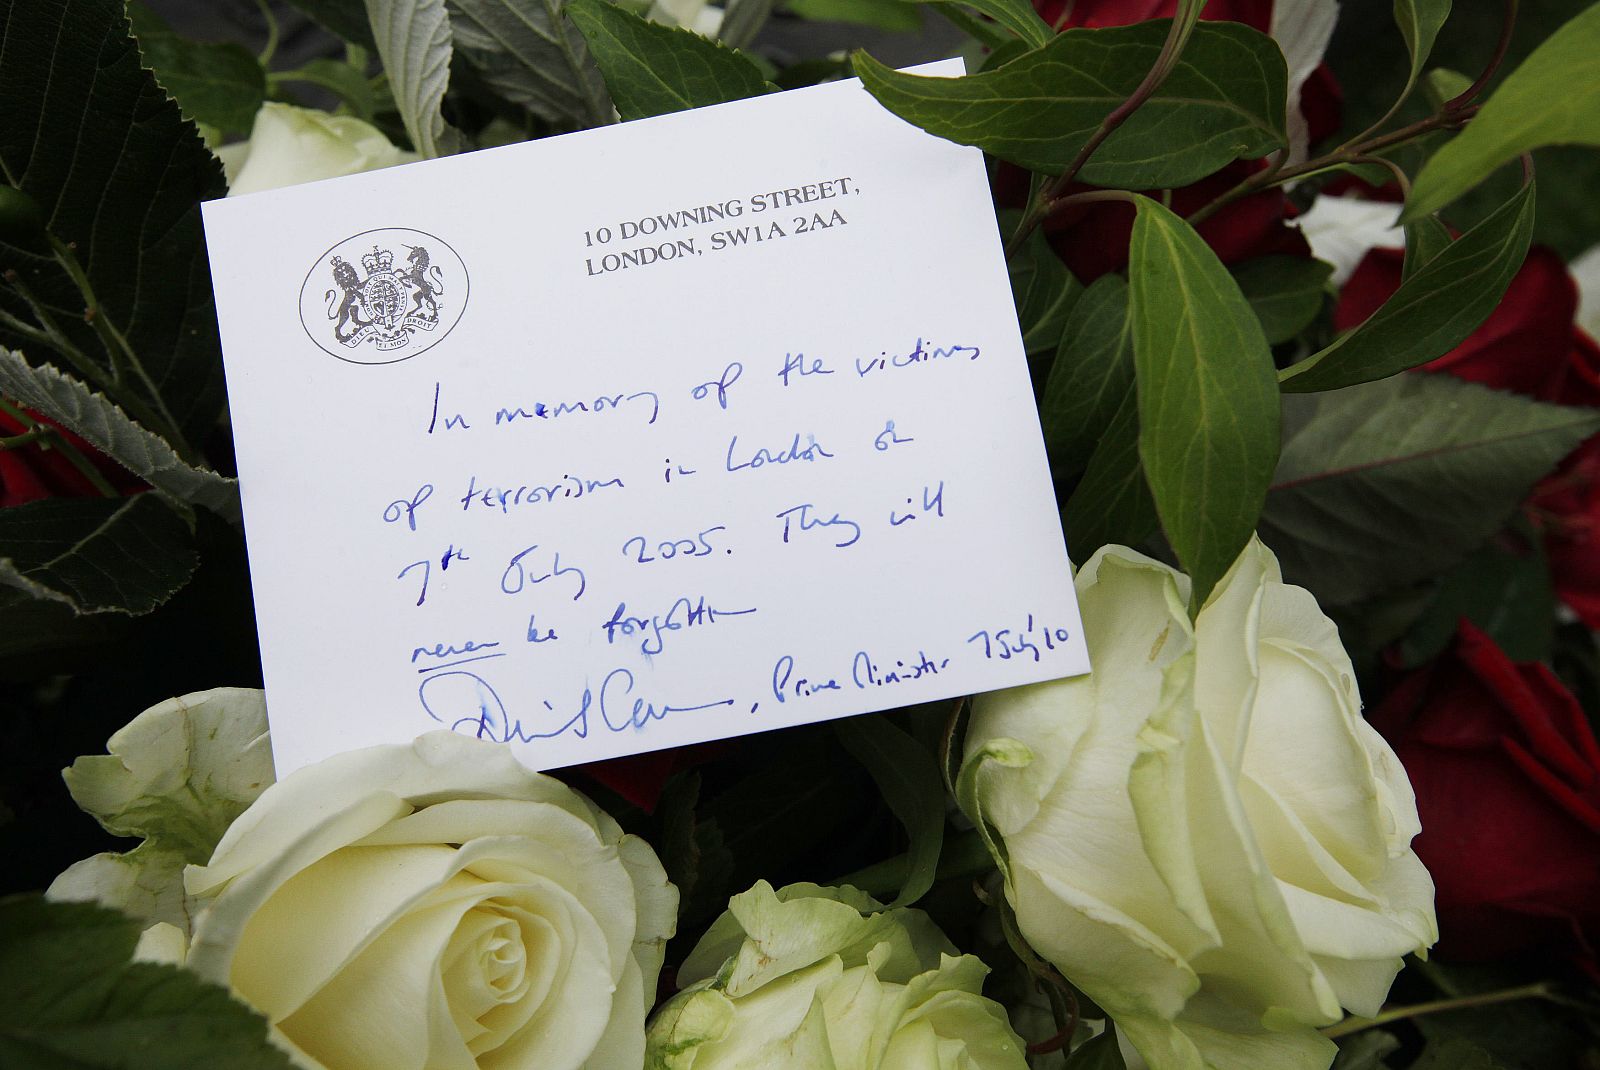 10 DOWNING STREET,
LONDON, SW1A 2AA
DIEU ET MON DROIT
In memory of the victims
of terrorism in London on
7th July 2005. They will
never be forgotten
David Cameron, Prime Minister 7 July '10